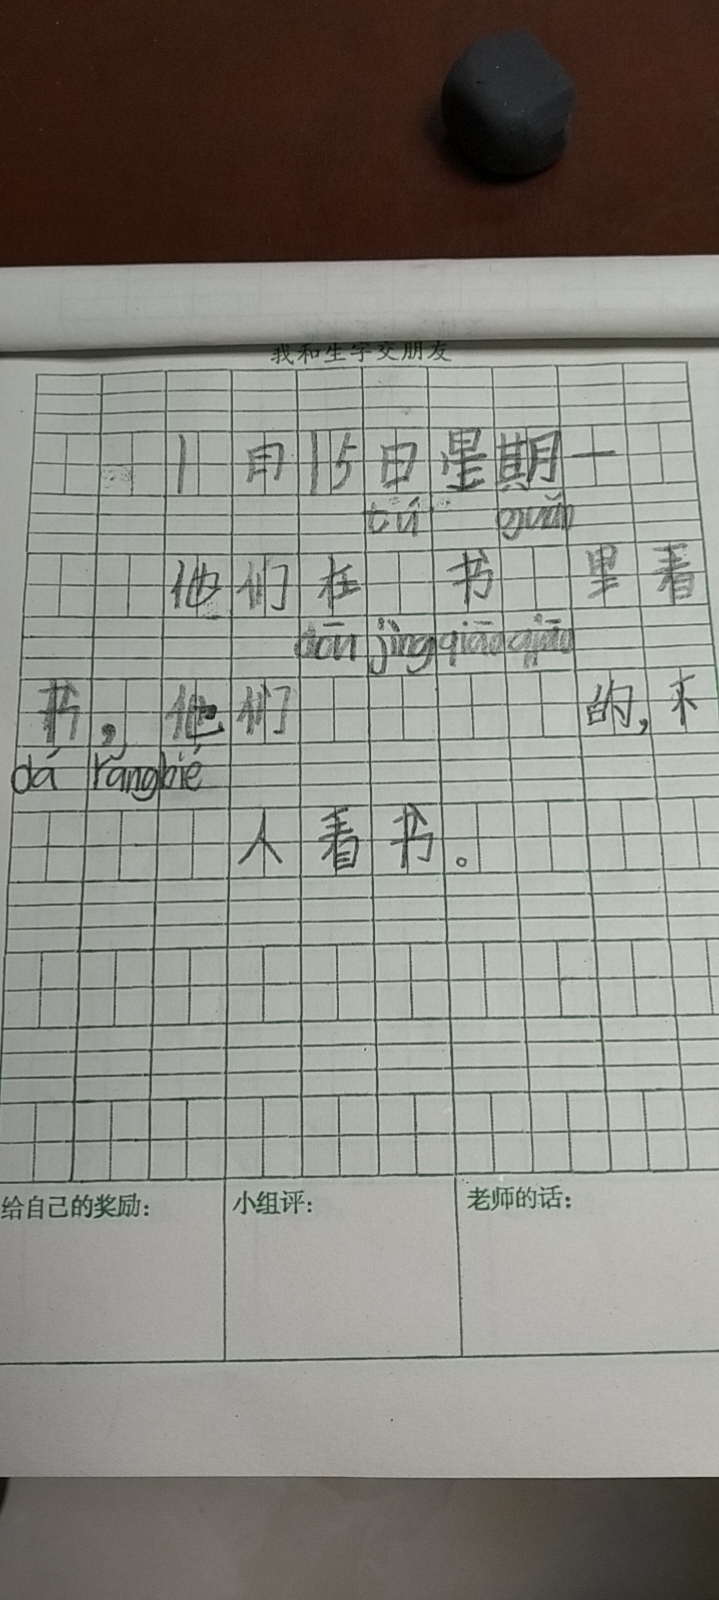 我和生字交朋友
1月15日星期一
tú guǎn
他们在 书 里看
dōu jìng qiāo qiāo
书，他们 的，不
dá rǎng bié
人看书。
给自己的奖励：
小组评：
老师的话：